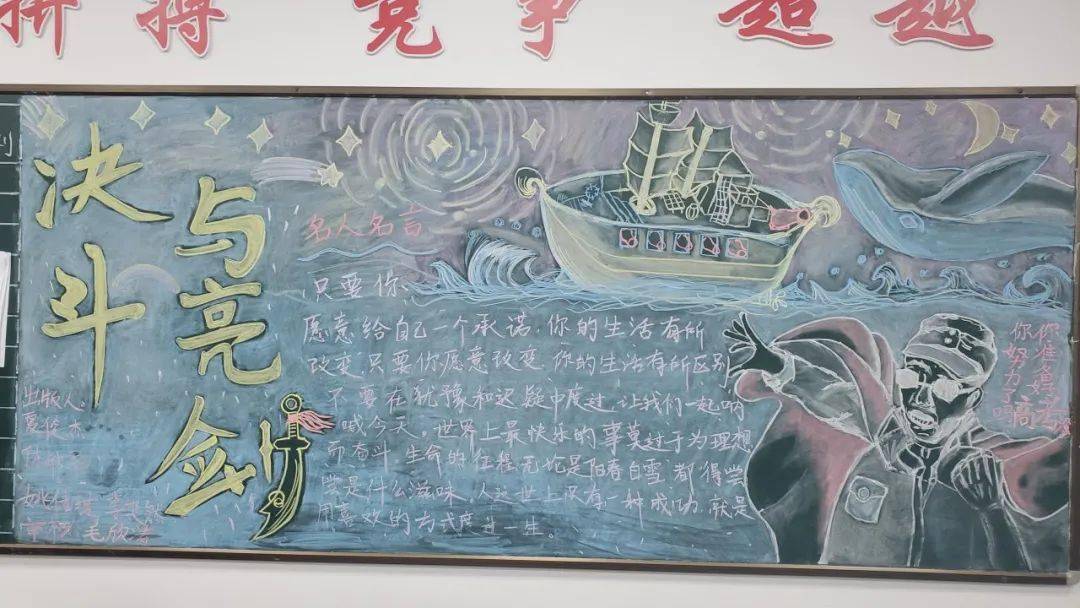 拼搏 竞争 超越
决斗
与亮
剑
名人名言
只要你
愿意给自己一个承诺，你的生活有所
改变，只要你愿意改变，你的生活有所区别
不要在犹豫和迟疑中度过，让我们一起呐
喊今天，世界上最快乐的事莫过于为理想
而奋斗 生命的征程无论是阳春白雪 都得尝
尝是什么滋味，人这世上只有一种成功，就是
用喜欢的方式度过一生。
你准备好了
你努力了吗
高
出版人：